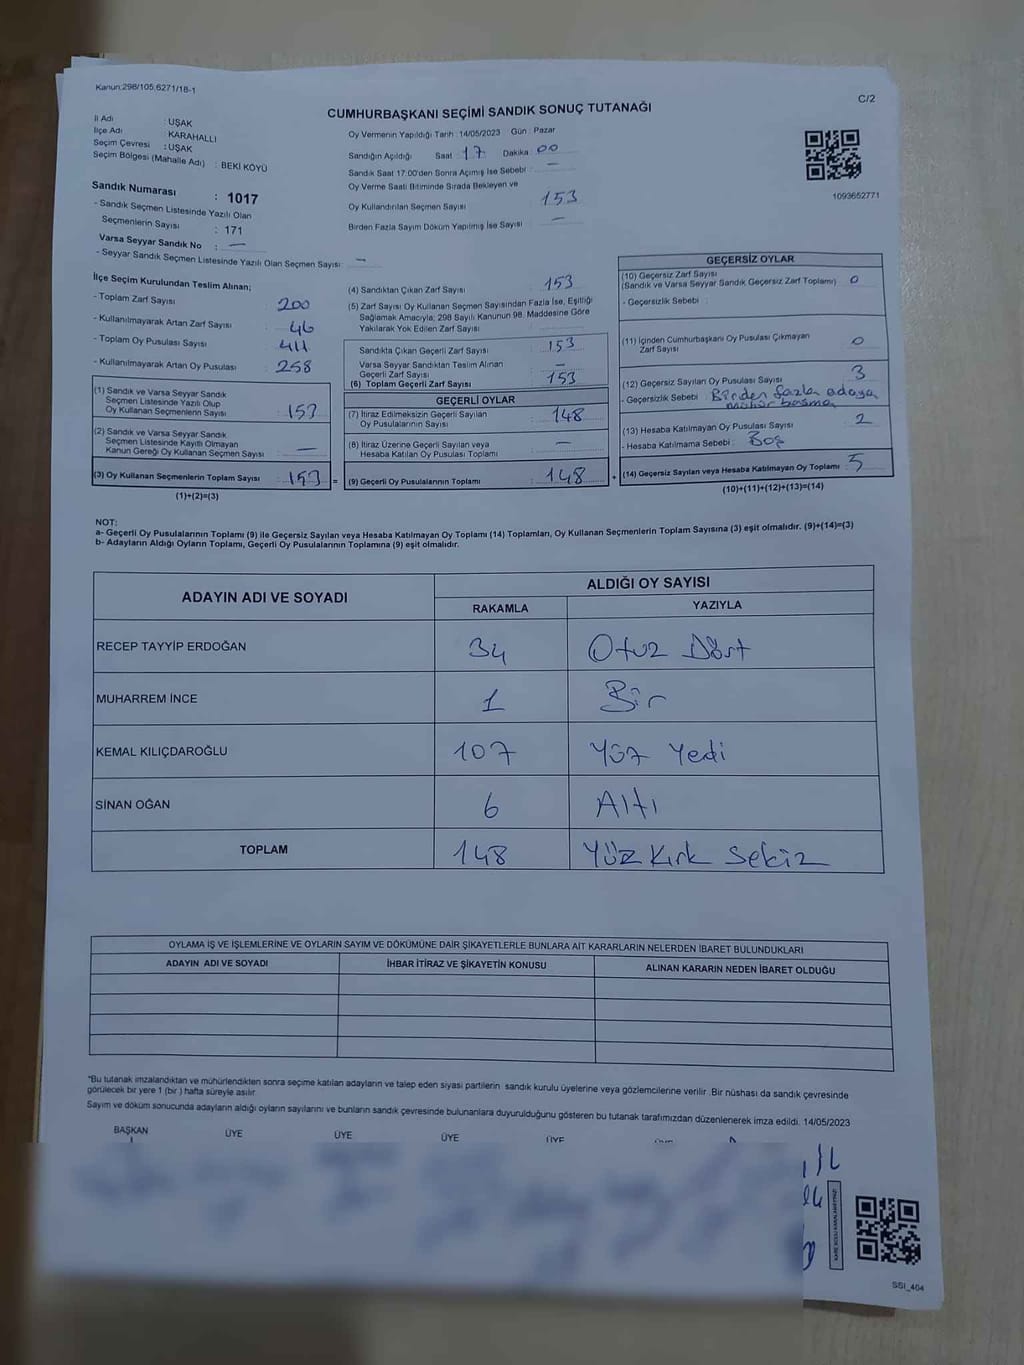 Kanun:298/105,6271/18-1
C/2
CUMHURBAŞKANI SEÇİMİ SANDIK SONUÇ TUTANAĞI
İl Adı : UŞAK
İlçe Adı : KARAHALLI
Seçim Çevresi : UŞAK
Seçim Bölgesi (Mahalle Adı) : BEKİ KÖYÜ
Sandık Numarası : 1017
- Sandık Seçmen Listesinde Yazılı Olan
Seçmenlerin Sayısı : 171
Varsa Seyyar Sandık No : —
- Seyyar Sandık Seçmen Listesinde Yazılı Olan Seçmen Sayısı: —
Oy Vermenin Yapıldığı Tarih : 14/05/2023 Gün : Pazar
Sandığın Açıldığı Saat : 17 Dakika : 00
Sandık Saat 17.00'den Sonra Açımış İse Sebebi : —
Oy Verme Saati Bitiminde Sırada Bekleyen ve
Oy Kullandırılan Seçmen Sayısı : 153
Birden Fazla Sayım Döküm Yapılmış İse Sayısı : —
1093652771
İlçe Seçim Kurulundan Teslim Alınan;
- Toplam Zarf Sayısı : 200
- Kullanılmayarak Artan Zarf Sayısı : 46
- Toplam Oy Pusulası Sayısı : 411
- Kullanılmayarak Artan Oy Pusulası : 258
(1) Sandık ve Varsa Seyyar Sandık
Seçmen Listesinde Yazılı Olup
Oy Kullanan Seçmenlerin Sayısı : 153
(2) Sandık ve Varsa Seyyar Sandık
Seçmen Listesinde Kayıtlı Olmayan
Kanun Gereği Oy Kullanan Seçmen Sayısı : —
(3) Oy Kullanan Seçmenlerin Toplam Sayısı : 153 =
(1)+(2)=(3)
(4) Sandıktan Çıkan Zarf Sayısı : 153
(5) Zarf Sayısı Oy Kullanan Seçmen Sayısından Fazla İse, Eşitliği
Sağlamak Amacıyla; 298 Sayılı Kanunun 98. Maddesine Göre
Yakılarak Yok Edilen Zarf Sayısı :
Sandıkta Çıkan Geçerli Zarf Sayısı : 153
Varsa Seyyar Sandıktan Teslim Alınan
Geçerli Zarf Sayısı : —
(6) Toplam Geçerli Zarf Sayısı : 153
GEÇERLİ OYLAR
(7) İtiraz Edilmeksizin Geçerli Sayılan
Oy Pusulalarının Sayısı : 148
(8) İtiraz Üzerine Geçerli Sayılan veya
Hesaba Katılan Oy Pusulası Toplamı : —
(9) Geçerli Oy Pusulalarının Toplamı : 148 +
GEÇERSİZ OYLAR
(10) Geçersiz Zarf Sayısı
(Sandık ve Varsa Seyyar Sandık Geçersiz Zarf Toplamı) : 0
- Geçersizlik Sebebi :
(11) İçinden Cumhurbaşkanı Oy Pusulası Çıkmayan
Zarf Sayısı : 0
(12) Geçersiz Sayılan Oy Pusulası Sayısı : 3
- Geçersizlik Sebebi : Birden fazla adaya
mühür basma
(13) Hesaba Katılmayan Oy Pusulası Sayısı : 2
- Hesaba Katılmama Sebebi : Boş
(14) Geçersiz Sayılan veya Hesaba Katılmayan Oy Toplamı : 5
(10)+(11)+(12)+(13)=(14)
NOT:
a- Geçerli Oy Pusulalarının Toplamı (9) ile Geçersiz Sayılan veya Hesaba Katılmayan Oy Toplamı (14) Toplamları, Oy Kullanan Seçmenlerin Toplam Sayısına (3) eşit olmalıdır. (9)+(14)=(3)
b- Adayların Aldığı Oyların Toplamı, Geçerli Oy Pusulalarının Toplamına (9) eşit olmalıdır.
ADAYIN ADI VE SOYADI
ALDIĞI OY SAYISI
RAKAMLA YAZIYLA
RECEP TAYYİP ERDOĞAN 34 Otuz Dört
MUHARREM İNCE 1 Bir
KEMAL KILIÇDAROĞLU 107 Yüz Yedi
SİNAN OĞAN 6 Altı
TOPLAM 148 Yüz Kırk Sekiz
OYLAMA İŞ VE İŞLEMLERİNE VE OYLARIN SAYIM VE DÖKÜMÜNE DAİR ŞİKAYETLERLE BUNLARA AİT KARARLARIN NELERDEN İBARET BULUNDUKLARI
ADAYIN ADI VE SOYADI İHBAR İTİRAZ VE ŞİKAYETİN KONUSU ALINAN KARARIN NEDEN İBARET OLDUĞU
*Bu tutanak imzalandıktan ve mühürlendikten sonra seçime katılan adayların ve talep eden siyasi partilerin sandık kurulu üyelerine veya gözlemcilerine verilir. Bir nüshası da sandık çevresinde
görülecek bir yere 1 (bir) hafta süreyle asılır.
Sayım ve döküm sonucunda adayların aldığı oyların sayılarını ve bunların sandık çevresinde bulunanlara duyurulduğunu gösteren bu tutanak tarafımızdan düzenlenerek imza edildi. 14/05/2023
BAŞKAN ÜYE ÜYE ÜYE ÜYE
SSI_464